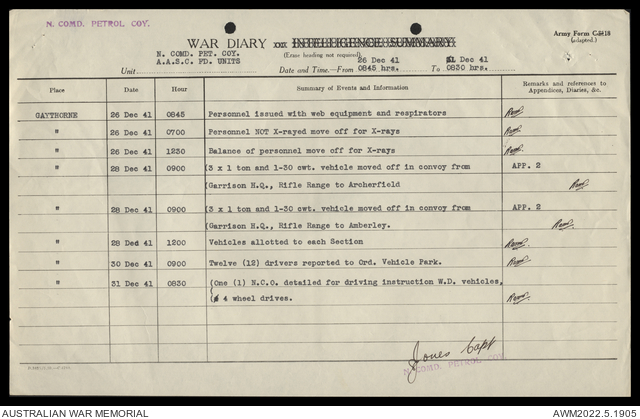 N. COMD. PETROL COY.
WAR DIARY xxx INTELLIGENCE SUMMARY
Army Form C.2118
(adapted.)
N. COMD. PET. COY.
(Erase heading not required)
26 Dec 41 31 Dec 41
Unit A.A.S.C. FD. UNITS Date and Time.—From 0845 hrs. To 0830 hrs.
Place Date Hour Summary of Events and Information Remarks and references to Appendices, Diaries, &c.
GAYTHORNE 26 Dec 41 0845 Personnel issued with web equipment and respirators
" 26 Dec 41 0700 Personnel NOT X-rayed move off for X-rays
" 26 Dec 41 1230 Balance of personnel move off for X-rays
" 28 Dec 41 0900 (3 x 1 ton and 1-30 cwt. vehicle moved off in convoy from APP. 2
(Garrison H.Q., Rifle Range to Archerfield
" 28 Dec 41 0900 (3 x 1 ton and 1-30 cwt. vehicle moved off in convoy from APP. 2
(Garrison H.Q., Rifle Range to Amberley.
" 28 Ded 41 1200 Vehicles allotted to each Section
" 30 Dec 41 0900 Twelve (12) drivers reported to Ord. Vehicle Park.
" 31 Dec 41 0830 (One (1) N.C.O. detailed for driving instruction W.D. vehicles,
( 4 wheel drives.
Jones Capt
N. COMD. PETROL COY.
AUSTRALIAN WAR MEMORIAL AWM2022.5.1905